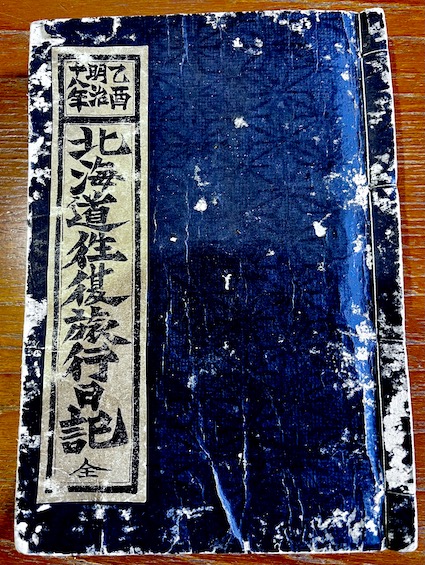 乙酉
明治
十八年
北海道往復旅行日記
全